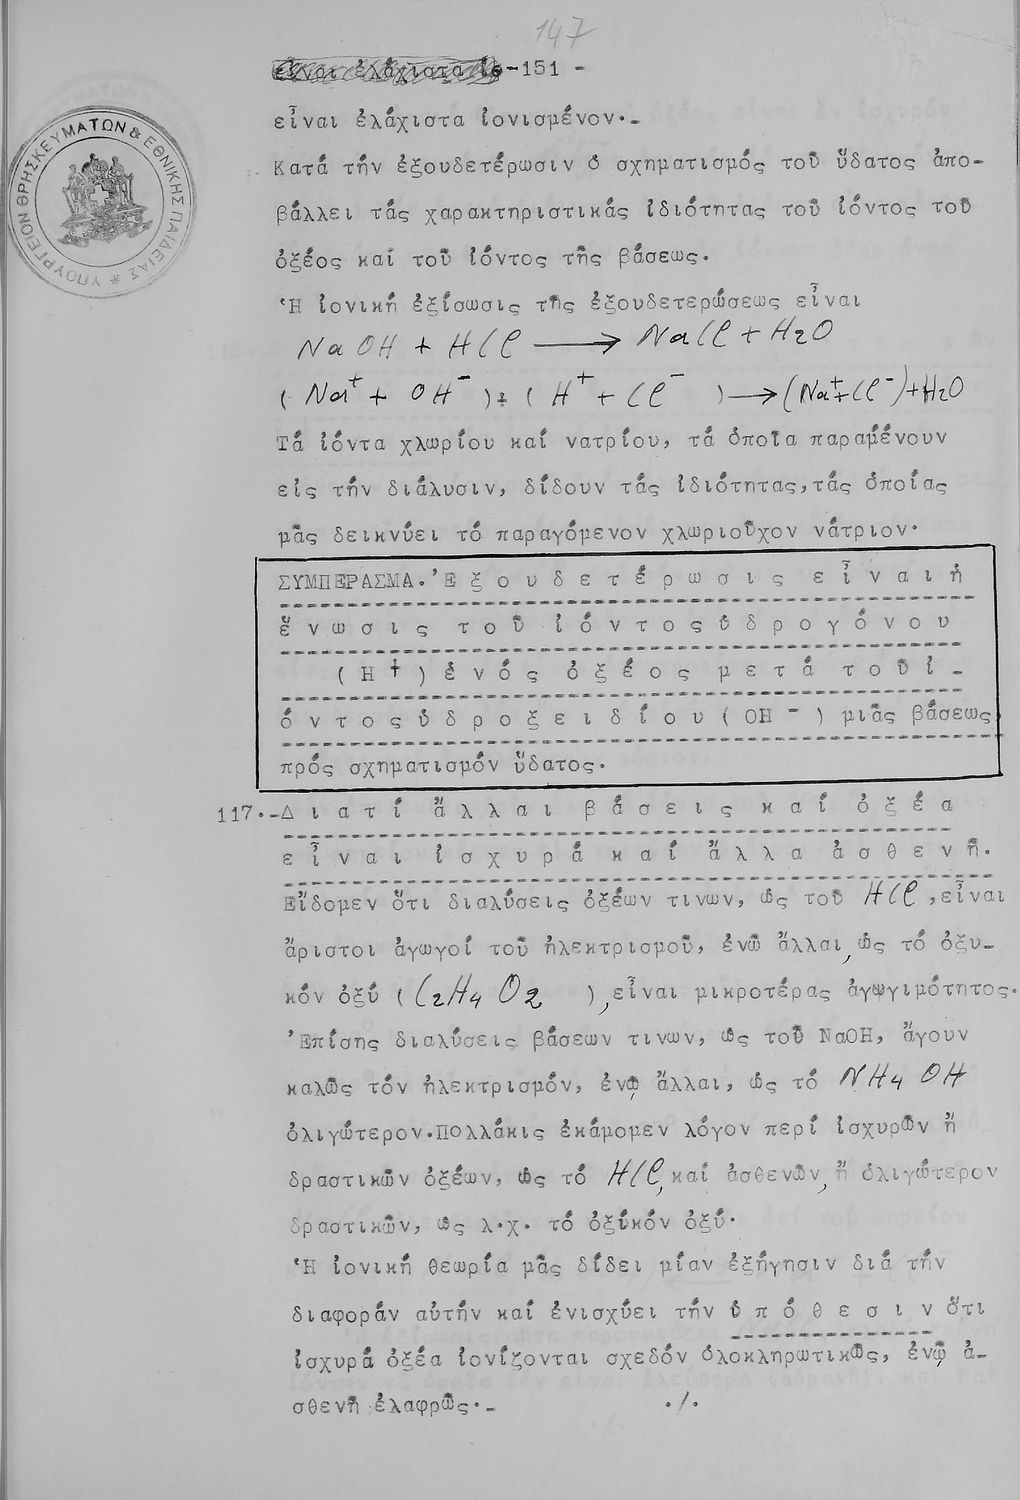 147
εἶναι ἐλάχιστα ἰο -151 -
εἶναι ἐλάχιστα ἰονισμένον.-
Κατά τήν ἐξουδετέρωσιν ὁ σχηματισμός τοῦ ὕδατος ἀπο-
βάλλει τάς χαρακτηριστικάς ἰδιότητας τοῦ ἰόντος τοῦ
ὀξέος καί τοῦ ἰόντος τῆς βάσεως.
Ἡ ἰονική ἐξίσωσις τῆς ἐξουδετερώσεως εἶναι
NaOH + HCl ⟶ NaCl + H2O
( Na⁺ + OH⁻ ) + ( H⁺ + Cl⁻ ) ⟶ (Na⁺ + Cl⁻) + H2O
Τά ἰόντα χλωρίου καί νατρίου, τά ὁποῖα παραμένουν
εἰς τήν διάλυσιν, δίδουν τάς ἰδιότητας, τάς ὁποίας
μᾶς δεικνύει τό παραγόμενον χλωριοῦχον νάτριον.
ΣΥΜΠΕΡΑΣΜΑ. Ἐξουδετέρωσις εἶναι ἡ
ἕνωσις τοῦ ἰόντος ὑδρογόνου
(H⁺) ἑνός ὀξέος μετά τοῦ ἰ-
όντος ὑδροξειδίου (OH⁻) μιᾶς βάσεως
πρός σχηματισμόν ὕδατος.
117.-Διατί ἄλλαι βάσεις καί ὀξέα
εἶναι ἰσχυρά καί ἄλλα ἀσθενῆ.
Εἴδομεν ὅτι διαλύσεις ὀξέων τινων, ὡς τοῦ HCl, εἶναι
ἄριστοι ἀγωγοί τοῦ ἠλεκτρισμοῦ, ἐνῶ ἄλλαι, ὡς τό ὀξυ-
κόν ὀξύ (C2H4O2), εἶναι μικροτέρας ἀγωγιμότητος.
Ἐπίσης διαλύσεις βάσεων τινων, ὡς τοῦ NaOH, ἄγουν
καλῶς τόν ἠλεκτρισμόν, ἐνῷ ἄλλαι, ὡς τό NH4OH
ὀλιγώτερον. Πολλάκις ἐκάμομεν λόγον περί ἰσχυρῶν ἤ
δραστικῶν ὀξέων, ὡς τό HCl, καί ἀσθενῶν, ἤ ὀλιγώτερον
δραστικῶν, ὡς λ.χ. τό ὀξϋκόν ὀξύ.
Ἡ ἰονική θεωρία μᾶς δίδει μίαν ἐξήγησιν διά τήν
διαφοράν αὐτήν καί ἐνισχύει τήν ὑπόθεσιν ὅτι
ἰσχυρά ὀξέα ἰονίζονται σχεδόν ὁλοκληρωτικῶς, ἐνῷ ἀ-
σθενῆ ἐλαφρῶς.- ./.
ΥΠΟΥΡΓΕΙΟΝ ΘΡΗΣΚΕΥΜΑΤΩΝ & ΕΘΝΙΚΗΣ ΠΑΙΔΕΙΑΣ